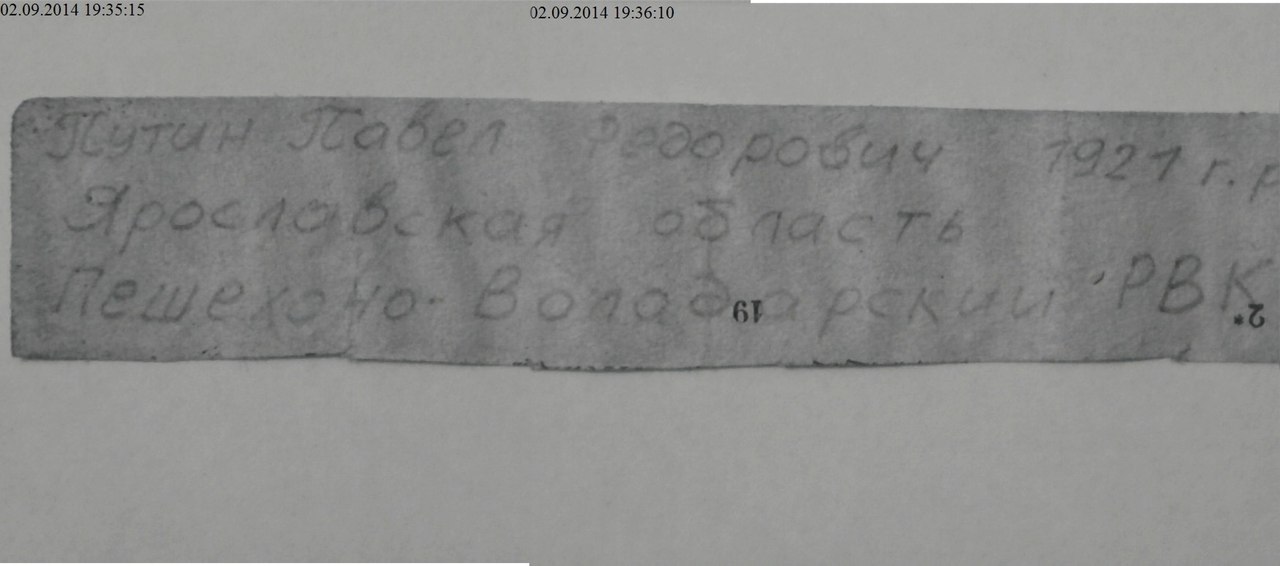 02.09.2014 19:35:15
02.09.2014 19:36:10
Путин Павел Федорович 1921 г. р
Ярославская область
Пешехоно-Воладарский РВК
19
2*